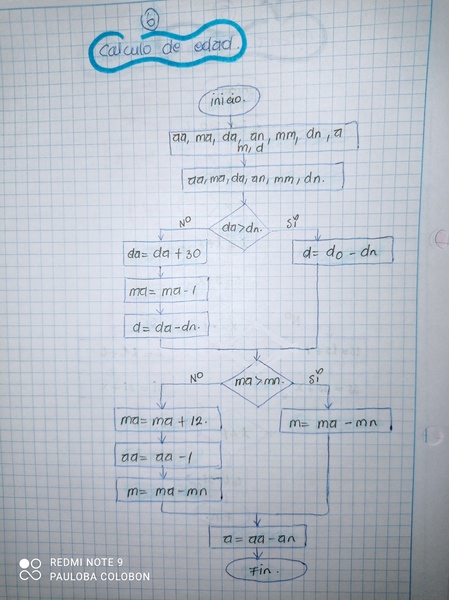 6
Calculo de edad.
inicio.
aa, ma, da, an, mm, dn, a
m, d
aa, ma, da, an, mm, dn.
NO
da>dn.
sí
da= da + 30
d= do - dn
ma= ma - 1
d= da-dn.
NO
ma>mn.
sí
ma= ma + 12.
m= ma - mn
aa= aa - 1
m= ma - mn
a = aa - an
Fin.
REDMI NOTE 9
PAULOBA COLOBON